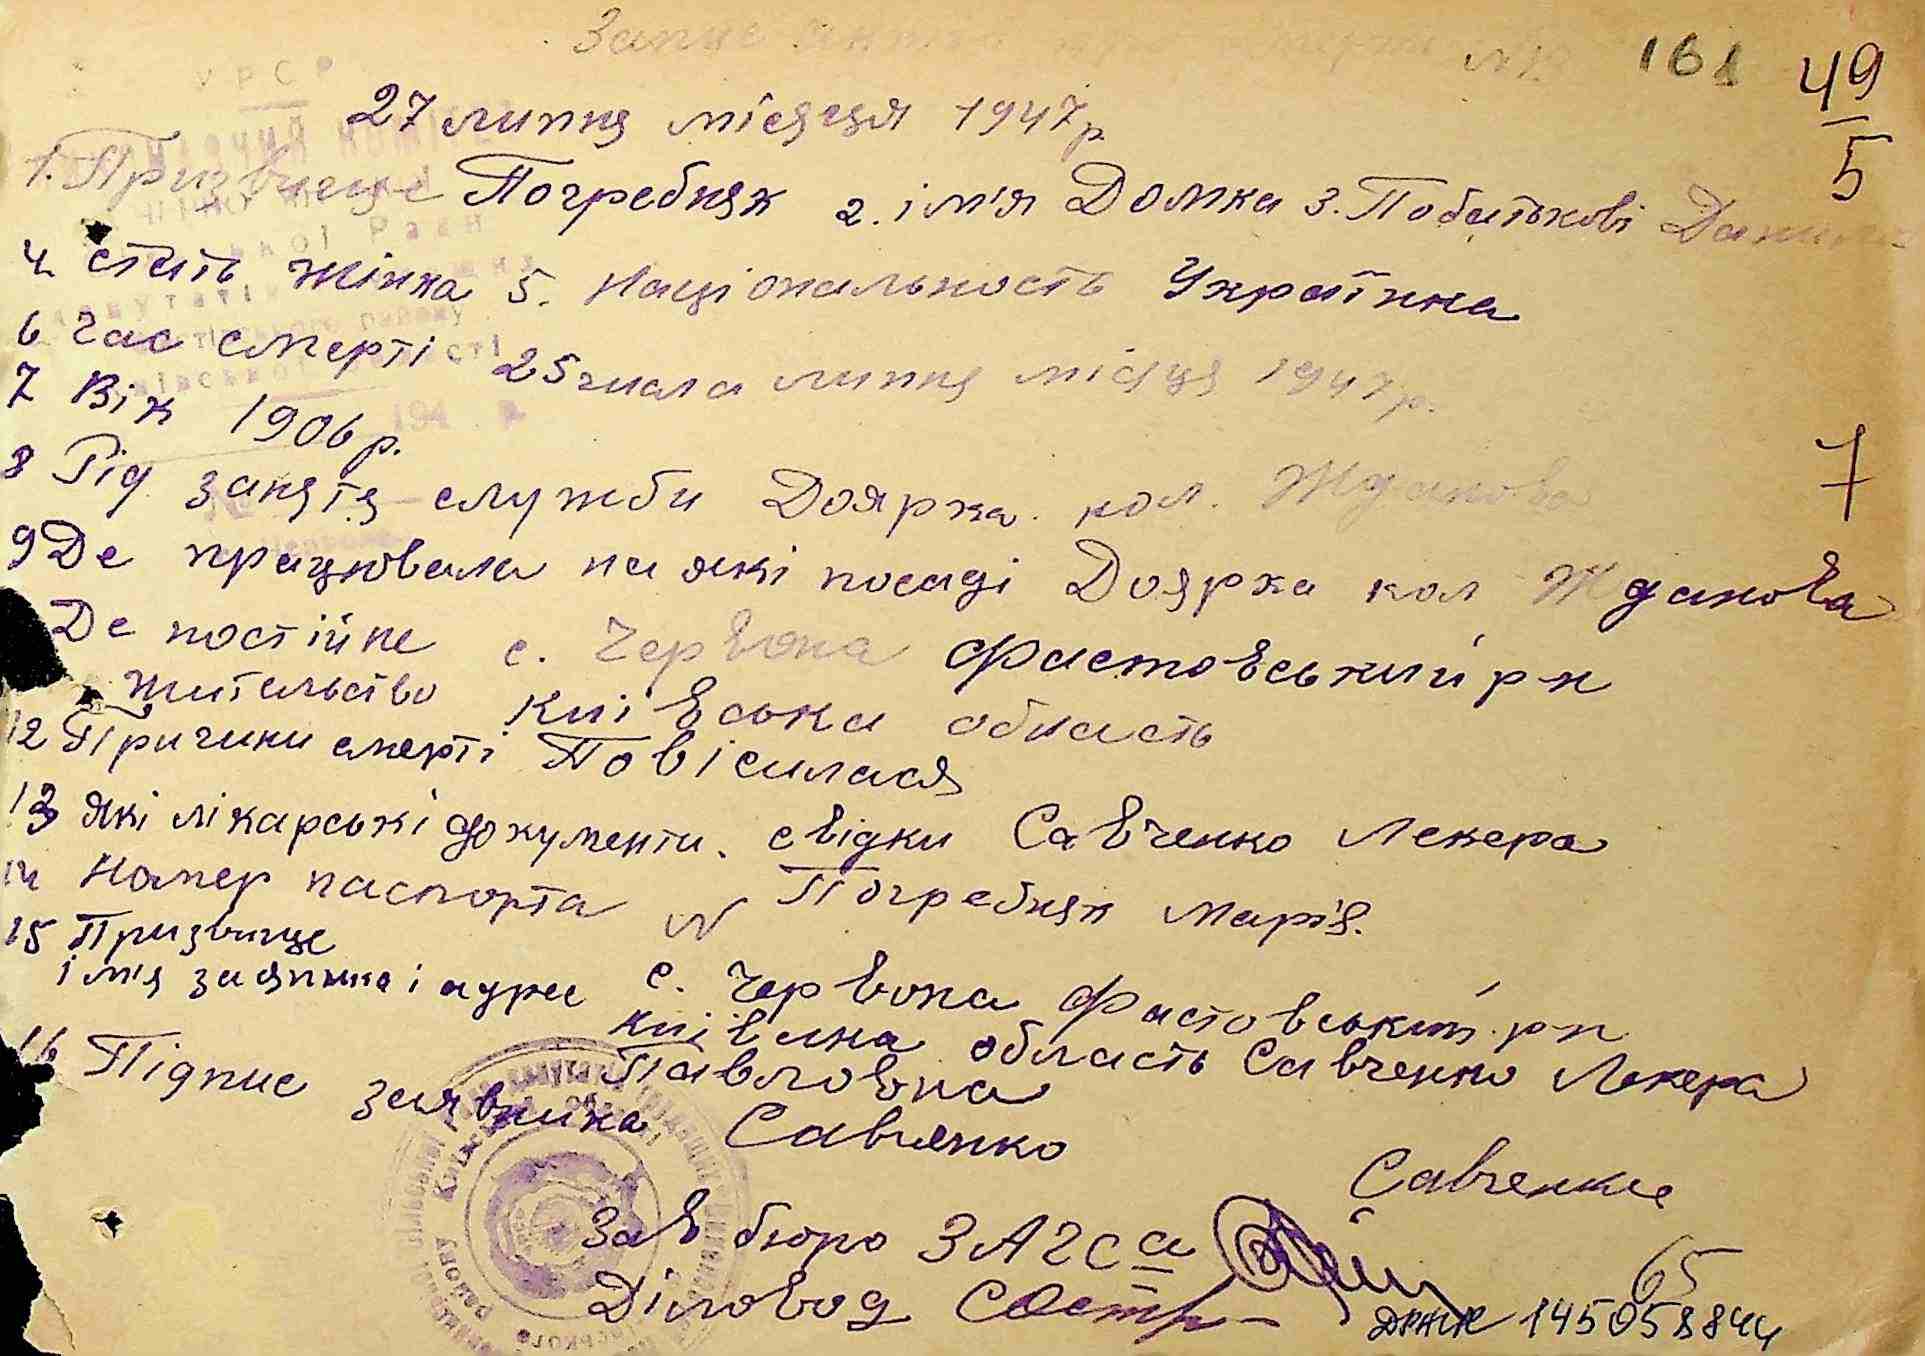 Запис 161 49
5
27 липня місяця 1947р.
1. Призвище Погребняк 2. ім'я Домка 3. Побатькові
4 стать жінка 5. Національность Українка
6 Час смерті 25 числа липня місяця 1947р.
7 Вік 1906р.
7
8 Рід занятя служби Доярка кол. Жданова
9 Де працювала на які посаді Доярка кол Жданова
Де постійне с. Червона Фастовський р-н
жительство Київська область
12 Причини смерті Повісилася
13 які лікарські документи. свідки Савченко Лекера
14 Номер паспорта N Погребняк Марія.
15 Призвище
і м'я заявника і адрес с. Червона Фастовський р-н
область Савченко Лекера
16 Підпис заявника Павловна
Савченко
Савченко
Зав бюро ЗАГСа
Діловод
65
145058844